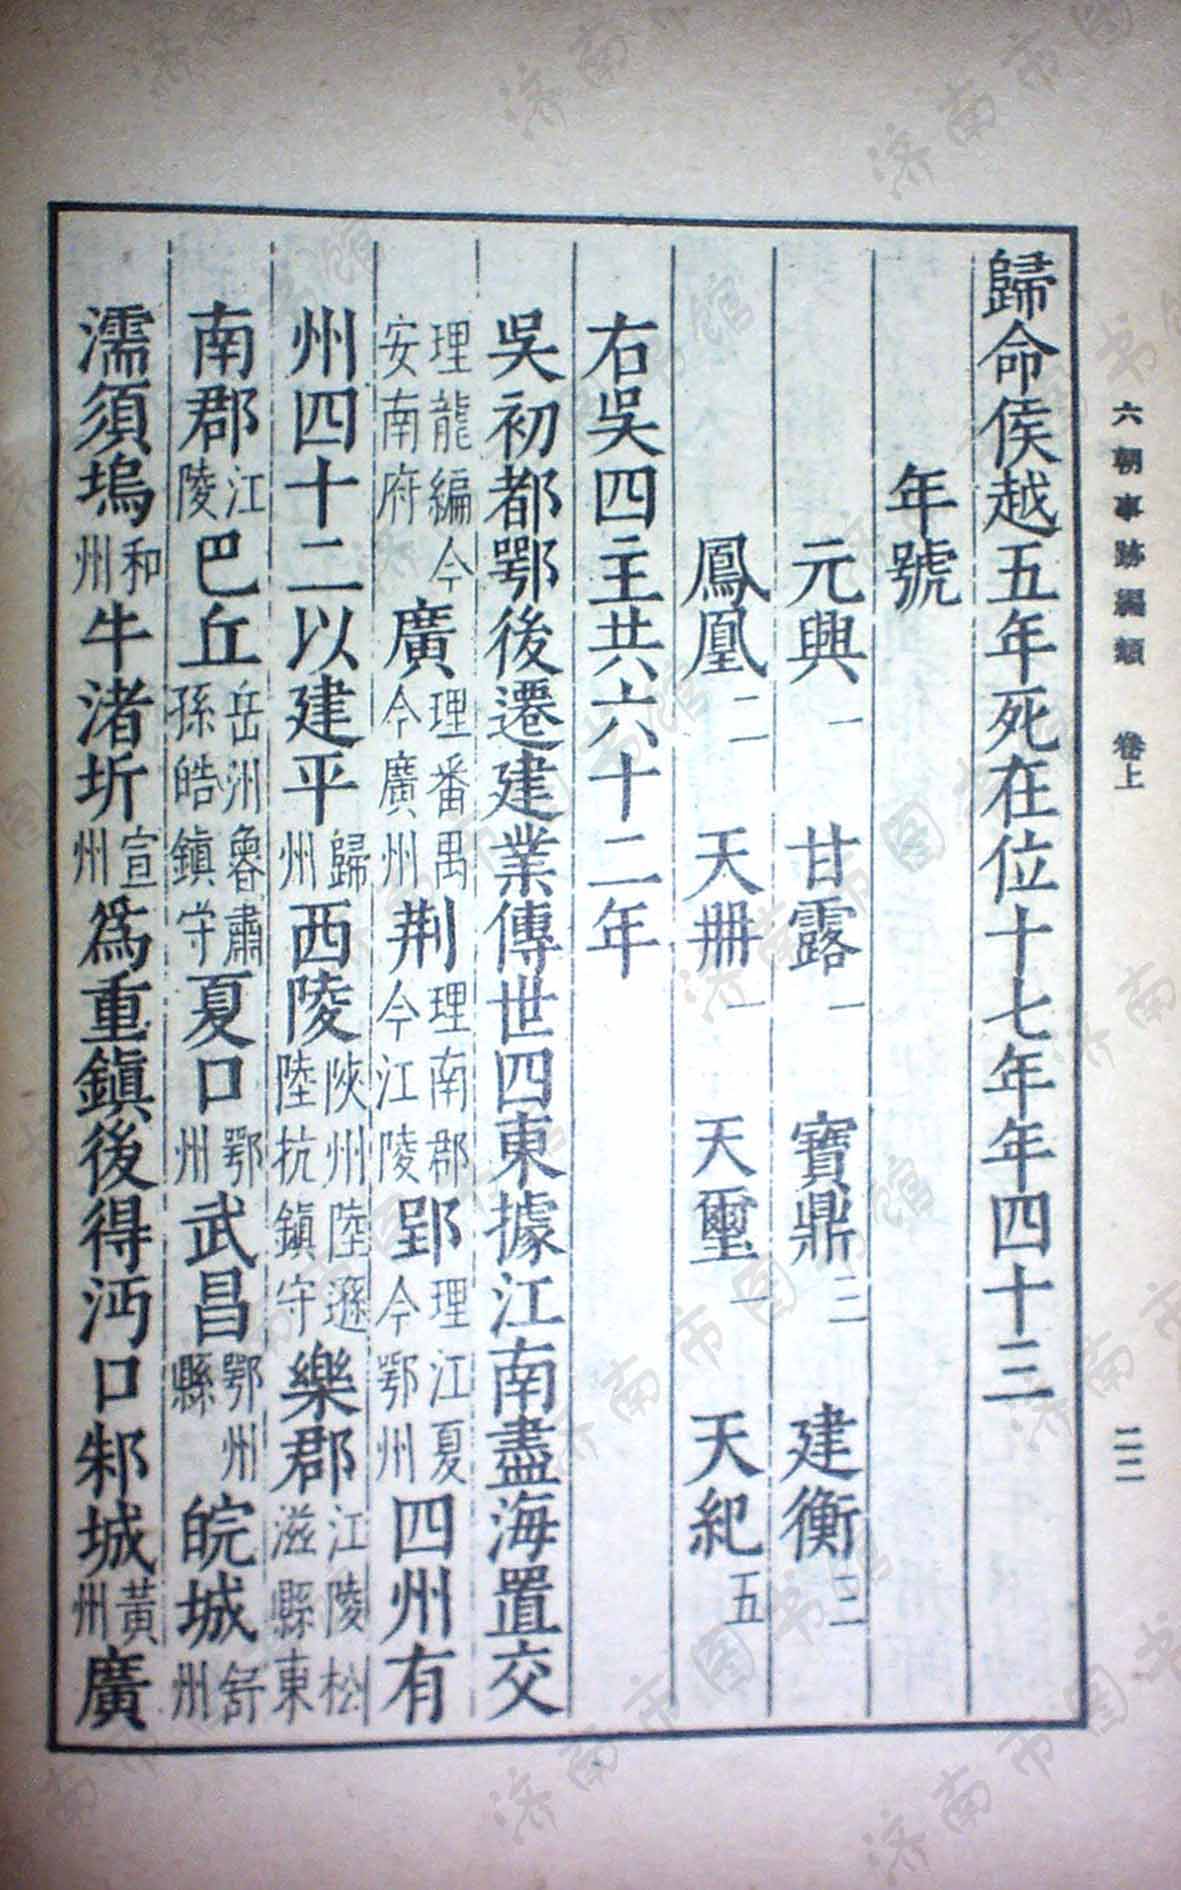 六朝事跡編類 卷上 二二
歸命侯越五年死在位十七年年四十三
年號
元興一 甘露一 寶鼎三 建衡三
鳳凰二 天冊一 天璽一 天紀五
右吳四主共六十二年
吳初都鄂後遷建業傳世四東據江南盡海置交
理龍編今安南府廣理番禺今廣州荆理南郡今江陵郢理江夏今鄂州四州有
州四十二以建平歸州西陵陜州陸遜陸抗鎮守樂郡江陵松滋縣東
南郡江陵巴丘岳洲魯肅孫皓鎮守夏口鄂州武昌鄂州縣皖城舒州
濡須塢和州牛渚圻宣州爲重鎮後得沔口邾城黃州廣
济南市图书馆